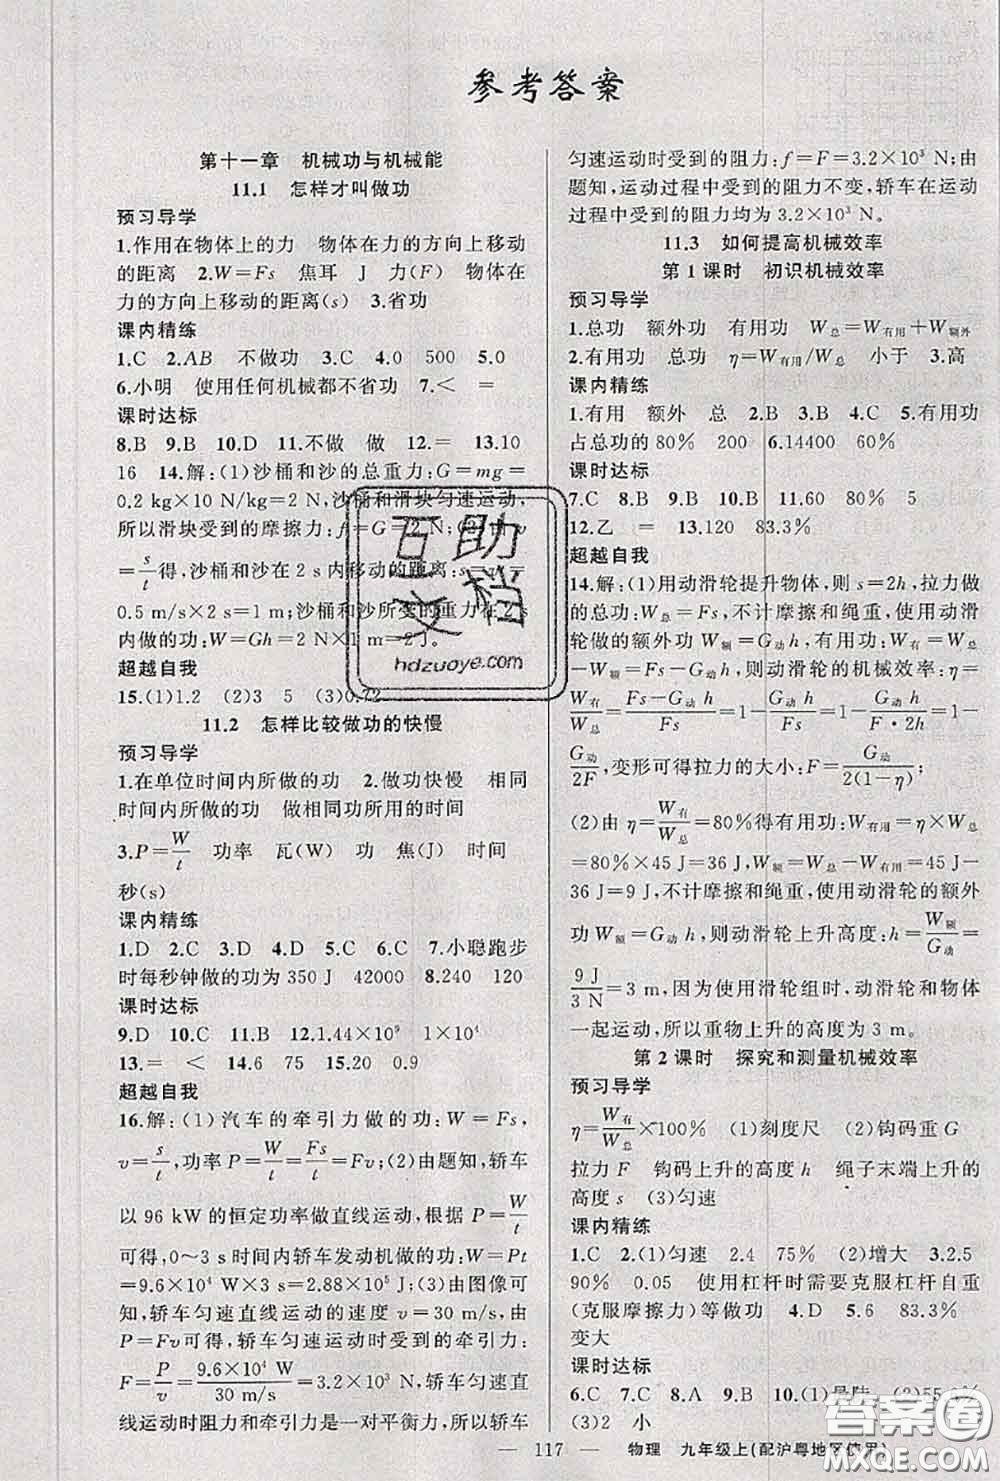 参考答案
第十一章 机械功与机械能
11.1 怎样才叫做功
预习导学
1.作用在物体上的力 物体在力的方向上移动
的距离 2.W=Fs 焦耳 J 力(F) 物体在
力的方向上移动的距离(s) 3.省功
课内精练
1.C 2.AB 不做功 3.C 4.0 500 5.0
6.小明 使用任何机械都不省功 7.< =
课时达标
8.B 9.B 10.D 11.不做 做 12.= 13.10
16 14.解:(1)沙桶和沙的总重力:G=mg=
0.2 kg×10 N/kg=2 N,沙桶和滑块匀速运动,
所以滑块受到的摩擦力:f=G=2 N;(2)由v
=s/t得,沙桶和沙在2 s内移动的距离:s=vt=
0.5 m/s×2 s=1 m;沙桶和沙所受的重力在2 s
内做的功:W=Gh=2 N×1 m=2 J。
超越自我
15.(1)1.2 (2)3 5 (3)0.72
11.2 怎样比较做功的快慢
预习导学
1.在单位时间内所做的功 2.做功快慢 相同
时间内所做的功 做相同功所用的时间
3.P=W/t 功率 瓦(W) 功 焦(J) 时间
秒(s)
课内精练
1.D 2.C 3.D 4.D 5.C 6.C 7.小聪跑步
时每秒钟做的功为350 J 42000 8.240 120
课时达标
9.D 10.C 11.B 12.1.44×10⁹ 1×10⁴
13.= < 14.6 75 15.20 0.9
超越自我
16.解:(1)汽车的牵引力做的功:W=Fs,
v=s/t,功率P=W/t=Fs/t=Fv;(2)由题知,轿车
以96 kW的恒定功率做直线运动,根据P=W/t
可得,0~3 s时间内轿车发动机做的功:W=Pt
=9.6×10⁴ W×3 s=2.88×10⁵ J;(3)由图像可
知,轿车匀速直线运动的速度v=30 m/s,由
P=Fv可得,轿车匀速运动时受到的牵引力:
F=P/v=9.6×10⁴ W/30 m/s=3.2×10³ N,轿车匀速直
线运动时阻力和牵引力是一对平衡力,所以轿车
匀速运动时受到的阻力:f=F=3.2×10³ N;由
题知,运动过程中受到的阻力不变,轿车在运动
过程中受到的阻力均为3.2×10³ N。
11.3 如何提高机械效率
第1课时 初识机械效率
预习导学
1.总功 额外功 有用功 W总=W有用+W额外
2.有用功 总功 η=W有用/W总 小于 3.高
课内精练
1.有用 额外 总 2.B 3.B 4.C 5.有用功
占总功的80% 200 6.14400 60%
课时达标
7.C 8.B 9.B 10.B 11.60 80% 5
12.乙 = 13.120 83.3%
超越自我
14.解:(1)用动滑轮提升物体,则s=2h,拉力做
的总功:W总=Fs,不计摩擦和绳重,使用动滑
轮做的额外功W额=G动h,有用功:W有=W总
-W额=Fs-G动h,则动滑轮的机械效率:η=
W有/W总=(Fs-G动h)/Fs=1-G动h/Fs=1-G动h/(F·2h)=1-
G动/2F,变形可得拉力的大小:F=G动/2(1-η);
(2)由η=W有/W总=80%得有用功:W有用=η×W总
=80%×45 J=36 J,W额=W总-W有用=45 J-
36 J=9 J,不计摩擦和绳重,使用动滑轮的额外
功W额=G动h,则动滑轮上升高度:h=W额/G动=
9 J/3 N=3 m,因为使用滑轮组时,动滑轮和物体
一起运动,所以重物上升的高度为3 m。
第2课时 探究和测量机械效率
预习导学
η=W有/W总×100% (1)刻度尺 (2)钩码重G
拉力F 钩码上升的高度h 绳子末端上升的
高度s (3)匀速
课内精练
1.C 2.(1)匀速 2.4 75% (2)增大 3.2.5
90% 0.05 使用杠杆时需要克服杠杆自重
(克服摩擦力)等做功 4.D 5.6 83.3%
变大
课时达标
6.C 7.C 8.A 9.B 10.(1)
(3)2 小
— 117 — 物理 九年级上(配沪粤地区使用)
互助
文档
hdzuoye.com
答案圈